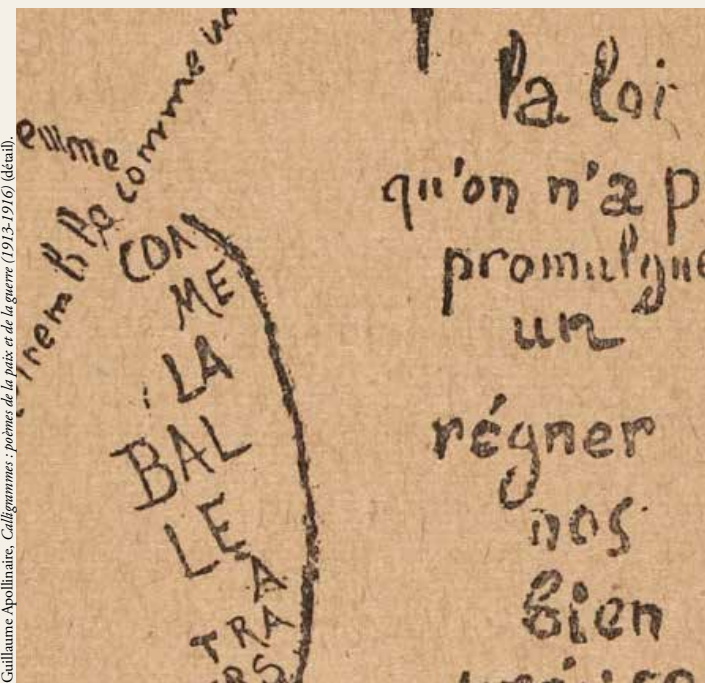 Guillaume Apollinaire, Calligrammes : poèmes de la paix et de la guerre (1913-1916) (détail).
comme un
COM
ME
LA
BAL
LE
A
TRA
ERS
la loi
qu'on n'a p
promulgue
un
régner
nos
bien